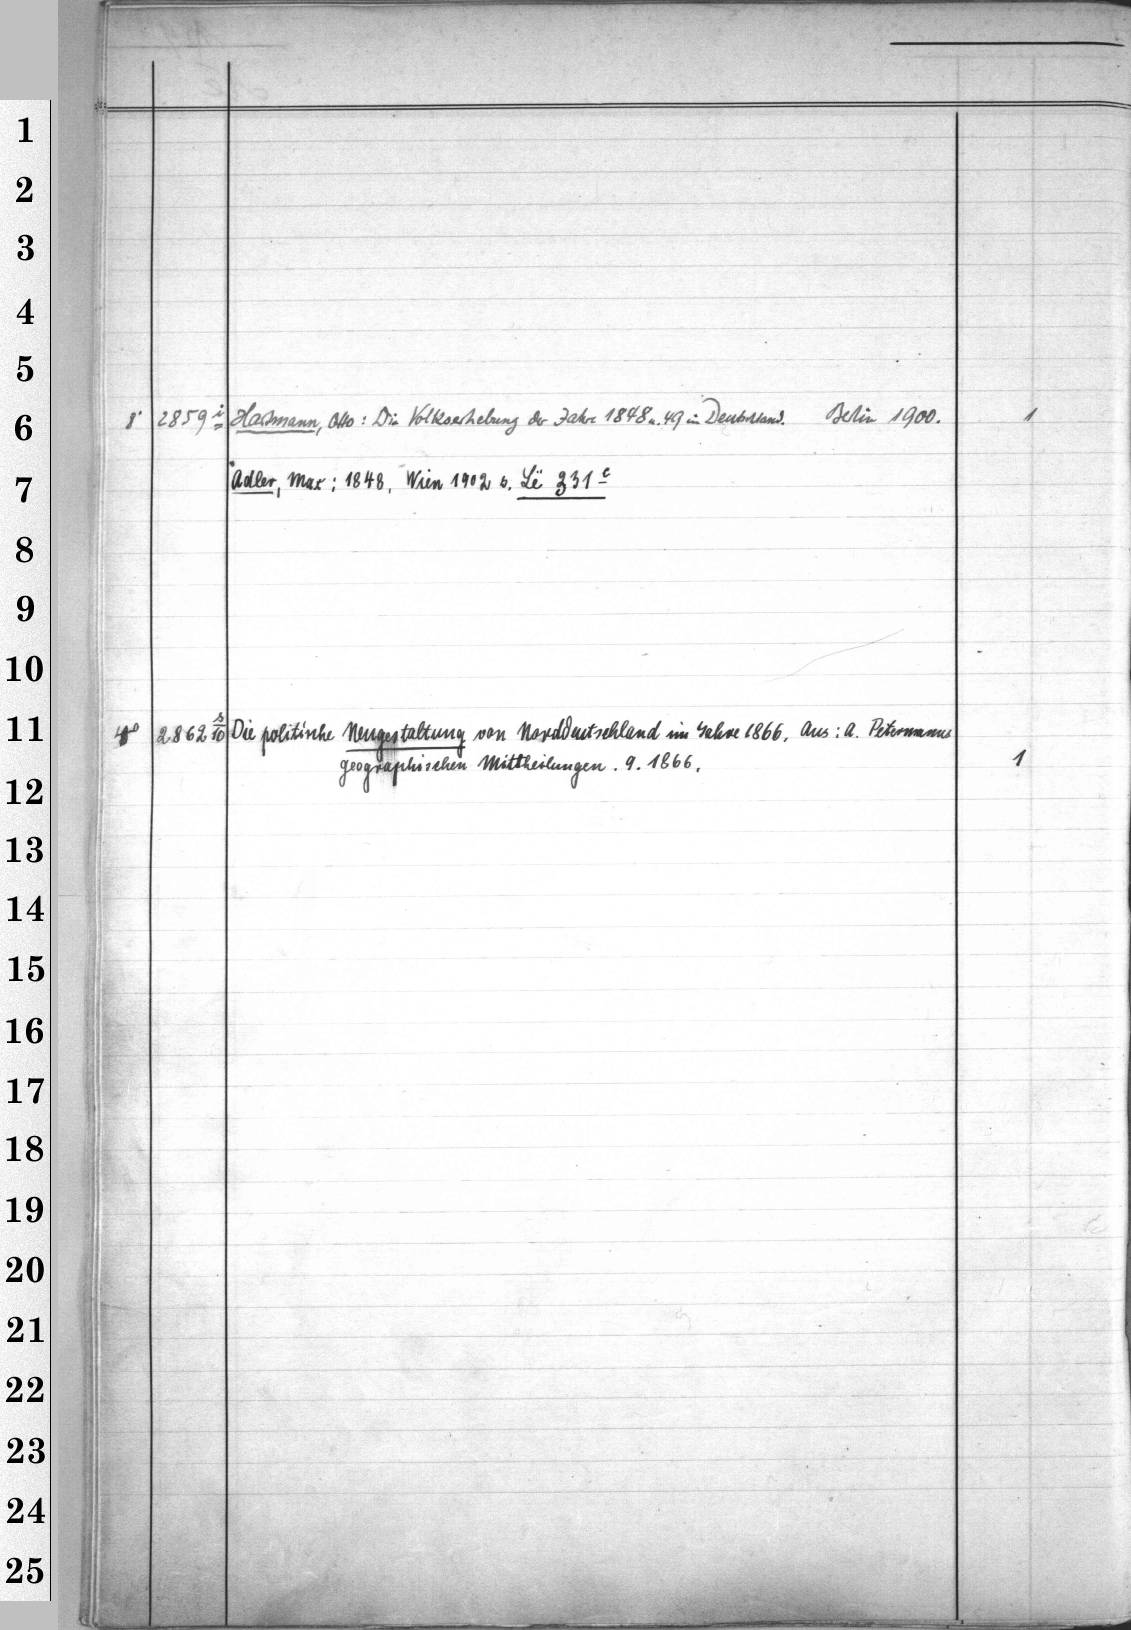 1
2
3
4
5
6
8° 2859 i Hartmann, Otto: Die Volkserhebung der Jahre 1848 u. 49 in Deutschland. Berlin 1900. 1
7
Adler, Max: 1848, Wien 1902 s. Lë 331 c
8
9
10
11
4° 2862 s/10 Die politische Neugestaltung von Norddeutschland im Jahre 1866. Aus: A. Petermanns
geographischen Mittheilungen. 9. 1866. 1
12
13
14
15
16
17
18
19
20
21
22
23
24
25